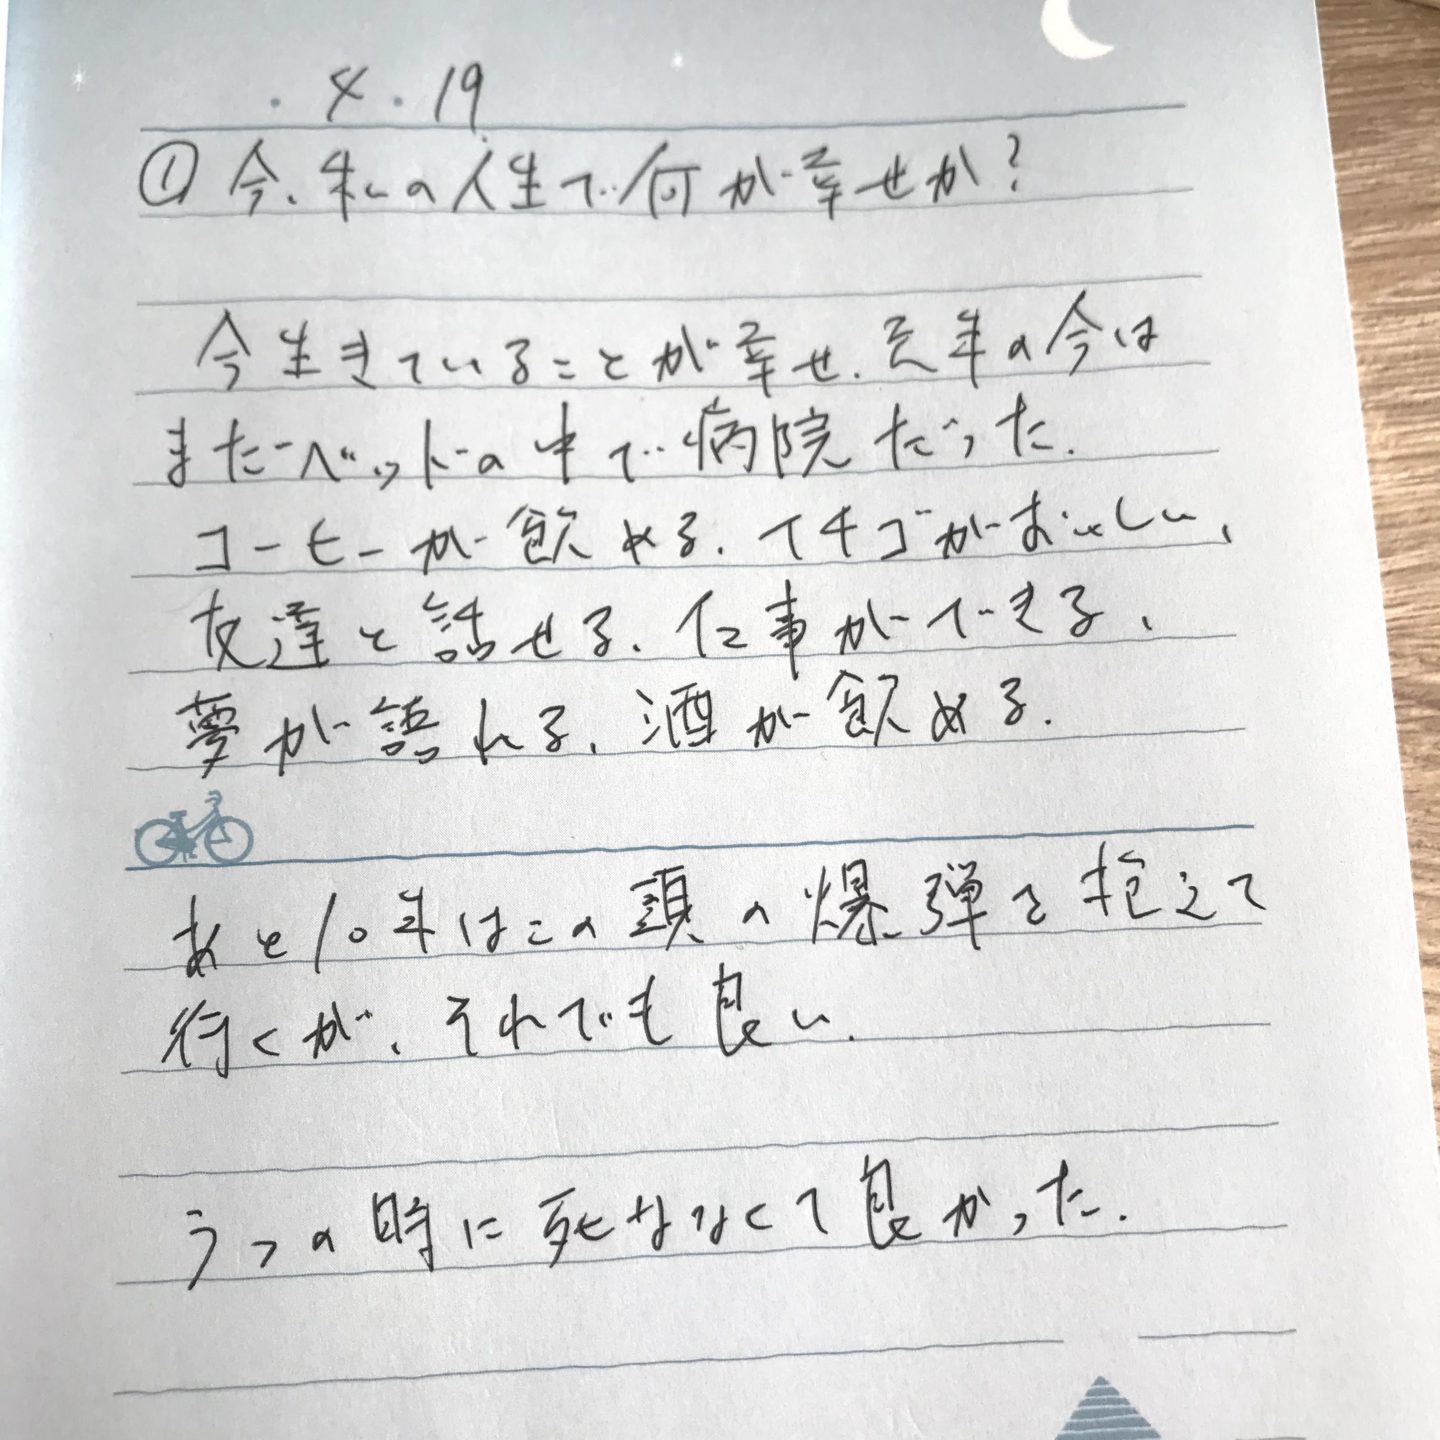 4.19
①今、私の人生で何が幸せか?
今生きていることが幸せ.去年の今は
まだベットの中で病院だった.
コーヒーが飲める.イチゴがおいしい、
友達と話せる、仕事ができる、
夢が語れる、酒が飲める.
あと10年はこの頭の爆弾を抱えて
行くが、それでも良い.
うつの時に死ななくて良かった.